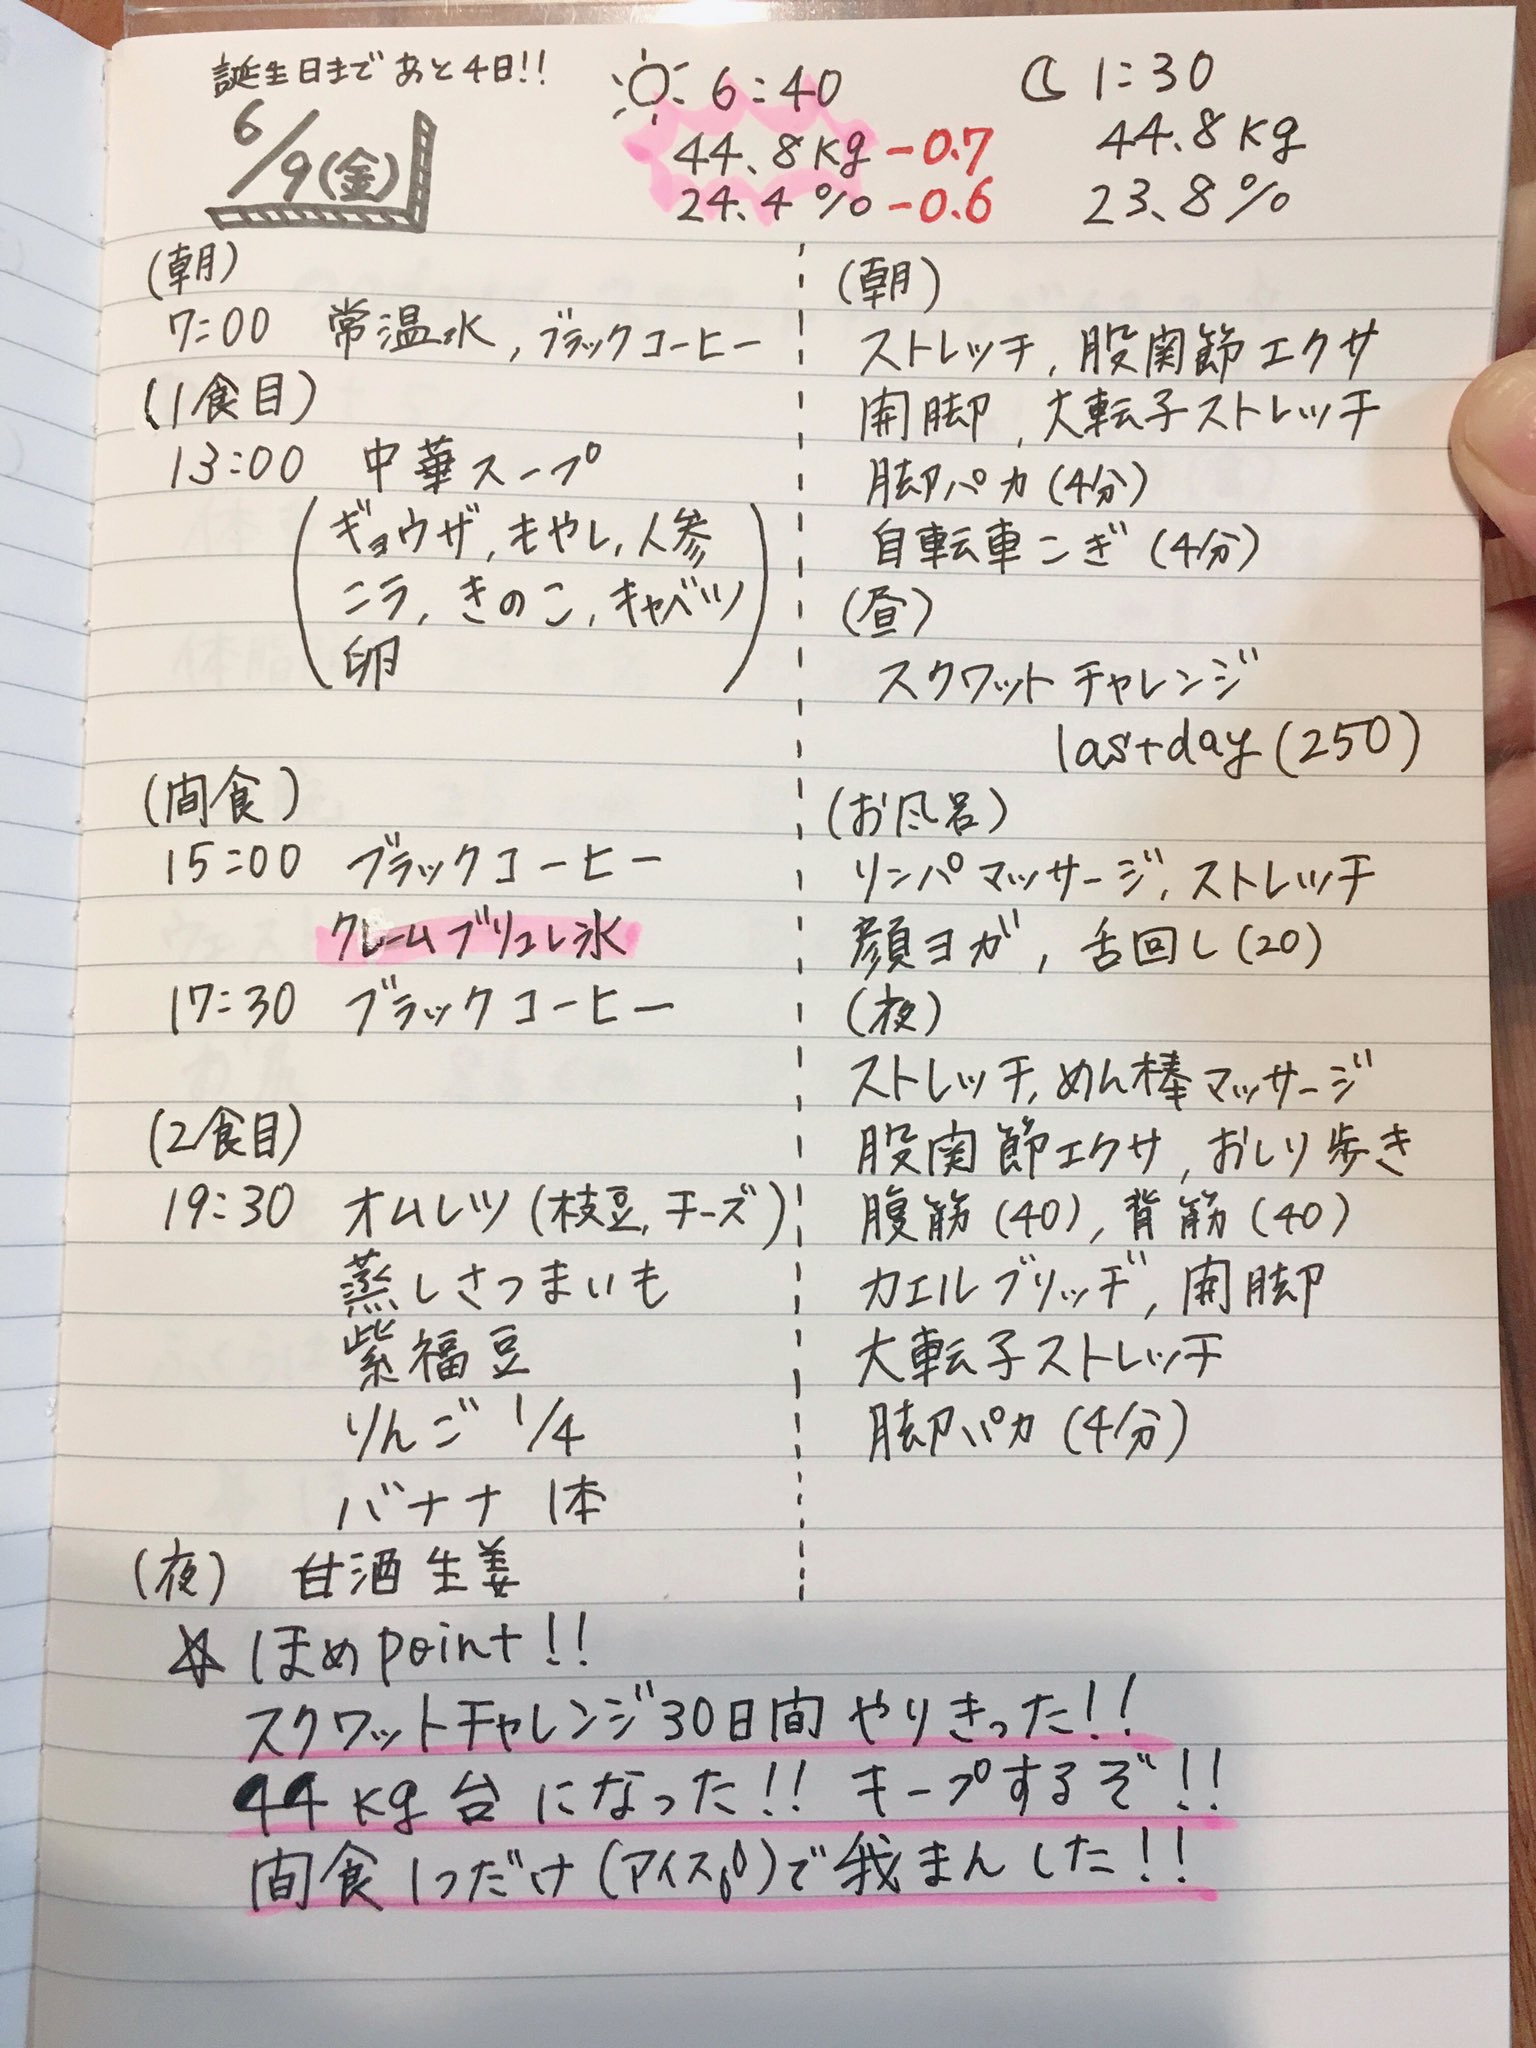 誕生日まであと4日!!
6/9(金)
6:40
44.8kg -0.7
24.4% -0.6
1:30
44.8kg
23.8%
(朝)
7:00 常温水, ブラックコーヒー
(1食目)
13:00 中華スープ
(ギョウザ, もやし, 人参
ニラ, きのこ, キャベツ
卵)
(間食)
15:00 ブラックコーヒー
クレームブリュレ氷
17:30 ブラックコーヒー
(2食目)
19:30 オムレツ(枝豆, チーズ)
蒸しさつまいも
紫福豆
りんご 1/4
バナナ 1本
(夜) 甘酒生姜
(朝)
ストレッチ, 股関節エクサ
開脚, 大転子ストレッチ
脚パカ(4分)
自転車こぎ(4分)
(昼)
スクワットチャレンジ
last day(250)
(お風呂)
リンパマッサージ, ストレッチ
顔ヨガ, 舌回し(20)
(夜)
ストレッチ, めん棒マッサージ
股関節エクサ, おしり歩き
腹筋(40), 背筋(40)
カエルブリッヂ, 開脚
大転子ストレッチ
脚パカ(4分)
☆ほめpoint!!
スクワットチャレンジ30日間やりきった!!
44kg台になった!! キープするぞ!!
間食1つだけ(アイス)で我まんした!!